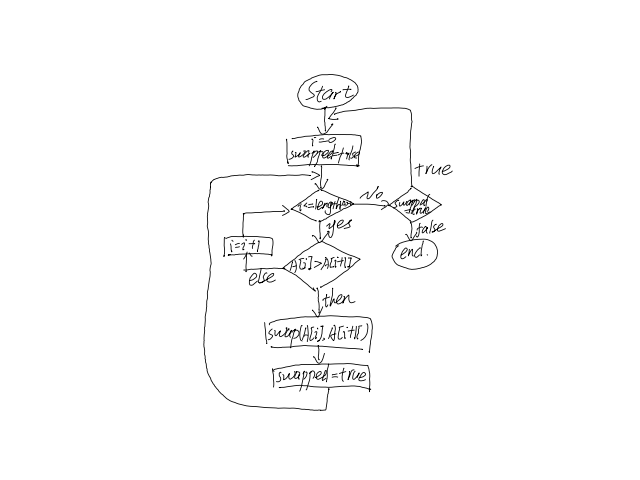 Start
i=0
swapped=false
true
i<=length
No
swapped
=true
yes
false
i=i+1
A[i]>A[i+1]
end.
else
then
swap(A[i],A[i+1])
swapped=true